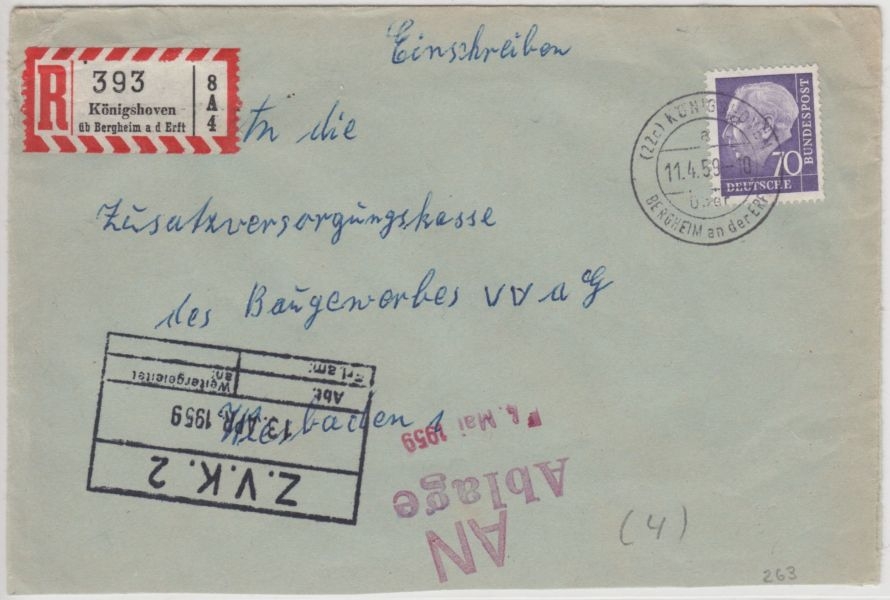 Einschreiben
R 393
Königshoven
üb Bergheim a d Erft
8
A
4
An die
Zusatzversorgungskasse
des Baugewerbes VVaG
Wiesbaden 1
70
DEUTSCHE
BUNDESPOST
(22c) KÖNIGSHOVEN
a
11.4.59-10
über
BERGHEIM an der ERFT
Z.V.K. 2
13. APR. 1959
Abt.
Weitergeleitet
an:
Erl. am:
AN
Ablage
4. Mai 1959
(4)
263